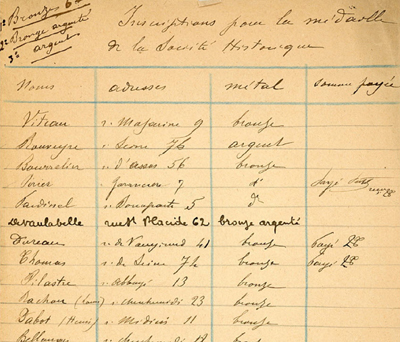 1° Bronzes 6f
2° Bronze argenté
3° argent
Inscriptions pour la médaille
de la Société Historique
Noms adresses métal Somme payée
Vitrau r. Mazarine 9 bronze
Rouveyre r. Seine 76 argent
Bourrelier r. d'assas 56 bronze
7 d°
r. Bonaparte 5 d°
Devaulabelle rue St Placide 62 bronze argenté
Dureau r. de Vaugirard 41 bronze Payé
Thomas r. de Seine 74 bronze Payé
Pilastre r. abbaye 13 bronze
Machon r. cherchemidi 23 bronze
Dabot (Henri) r. Médicis 11 bronze